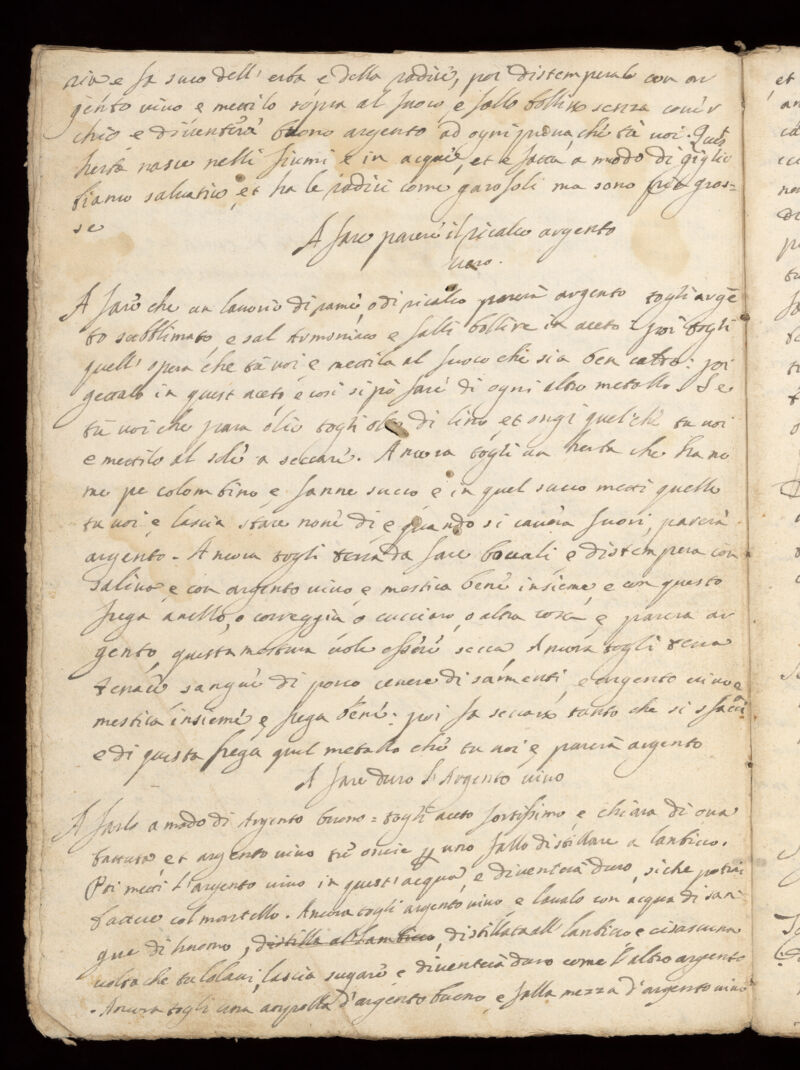 e fa suco dell' erba e della radici, poi distemperalo con ar
gento vivo e mettilo sopra al fuoco e fallo bollire senza couer
chio e diventerà buono argento ad ogni prova che tù voi. Quest
herba nasce nelli fiumi e in acque, et è fatta a modo di giglio
bianco salvatico, et ha le radici come garofoli ma sono più gros=
se
A fare parere il ricalco argento
vero.
A fare che un lavorio di rame, o di ricalco parerà argento togli argē
to subblimato, e sal Armoniaco e falli bollire in aceto i poi togli
quell' opera che tù voi e mettila al fuoco che sia ben calda: poi
gettalo in quest aceto, e così si pò fare di ogni altro metallo. Se
tù voi che paia olio togli olio di lino, et ongi quel chè tu voi
e mettilo al solè a seccare. Ancora togli un herba che ha no
me pe colombino e fanne succo e in quel succo metti quello
tu voi e lascia stare nove di e quando si cavera fuori, parerà
argento. Ancora togli terra da fare boccali e distempera con
salivo e con argento vivo, e mestica benè insieme, e con questo
frega anello, o correggia, o cucciaro, o altra cosa, e parera ar
gento, questa mestura vole esserè secca. Ancora togli terra
tenace sanguè di porco cenere di sarmenti, e argento vivo e
mestica insiemè e frega benè: poi fa seccare tanto che si sfacci
e di questa frega quel metallo chè tu voi e parerà argento
A fare duro l'Argento vivo
A farlo a modo di Argento buono = togli aceto fortissimo, e chiara di ova
battuta, et argento vivo tre oncie uno fallo distillare a lanbicco.
Poi metti l'argento vivo in quest' acqua, e diventerà duro, si che potrai
battere col martello. Ancora togli argento vivo, e lavalo con acqua di san
gue di huomo, distilla al lambicco, distillata all' lanbicco e ciascuna
volta che tu lo lavi, lascia sugare, e diventerà duro come l'altro argento
. Ancora togli una ampolla d'argento buono, e falla mezza d'argento vivo